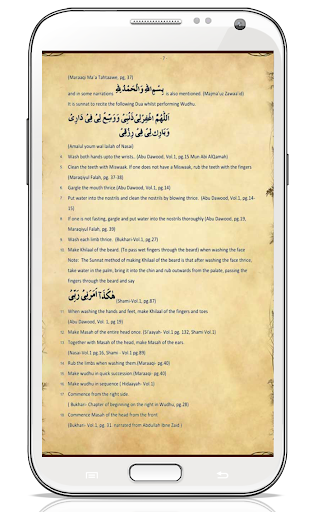 (Maraaqi Ma'a Tahtaawe, pg. 37)
and in some narrations بِسْمِ اللهِ وَالْحَمْدُ لِلّٰهِ is also mentioned. (Majma'uz Zawaa'id)
It is sunnat to recite the following Dua whilst performing Wudhu.
اَللّٰهُمَّ اغْفِرْلِىْ ذَنْبِىْ وَوَسِّعْ لِىْ فِىْ دَارِىْ
وَبَارِكْ لِىْ فِىْ رِزْقِىْ
(Amalul youm wal lailah of Nasai)
Wash both hands upto the wrists. (Abu Dawood, Vol.1, pg.15 Mun Abi AlQamah)
Clean the teeth with Miswaak. If one does not have a Miswaak, rub the teeth with the fingers
(Maraqiyul Falah, pg. 37-38)
Gargle the mouth thrice.(Abu Dawood, Vol.1, pg.14)
Put water into the nostrils and clean the nostrils by blowing thrice. (Abu Dawood, Vol.1, pg.14-
15)
If one is not fasting, gargle and put water into the nostrils thoroughly (Abu Dawood, pg.19,
Maraqiyul Falah, pg. 39)
Wash each limb thrice. (Bukhari-Vol.1, pg.27)
Make Khilaal of the beard. (To pass wet fingers through the beard) when washing the face
Note: The Sunnat method of making Khilaal of the beard is that after washing the face thrice,
take water in the palm, bring it into the chin and rub outwards from the palate, passing the
fingers through the beard and say
هٰكَذَا اَمَرَنِىْ رَبِّىْ (Shami-Vol.1, pg.87)
When washing the hands and feet, make Khilaal of the fingers and toes
(Abu Dawood, Vol. 1, pg.19)
Make Masah of the entire head once: (Si'aayah- Vol.1 pg. 132, Shami-Vol.1)
Together with Masah of the head, make Masah of the ears.
(Nasai-Vol.1 pg.16, Shami - Vol.1 pg.89)
Rub the limbs when washing them (Maraaqi- pg.40)
Make wudhu in quick succession (Maraaqi- pg.40)
Make wudhu in sequence ( Hidaayah- Vol.1)
Commence from the right side.
( Bukhari- Chapter of beginning on the right in Wudhu, pg.28)
Commence Masah of the head from the front
(Bukhari- Vol.1, pg. 31, narrated from Abdullah ibne Zaid )